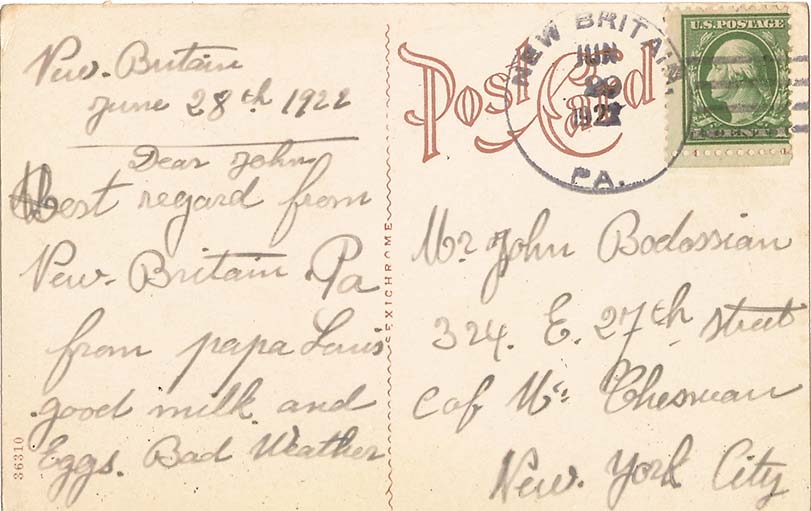 New. Britain
June 28th 1922
Dear John
best regard from
New. Britain Pa
from papa Louis
good milk and
Eggs. Bad Weather
36310
SEXICHROME
Post Card
NEW BRITAIN,
JUN
1922
PA.
U.S. POSTAGE
1 CENT 1
Mr John Bodossian
324. E. 27th street
c of
New. York City